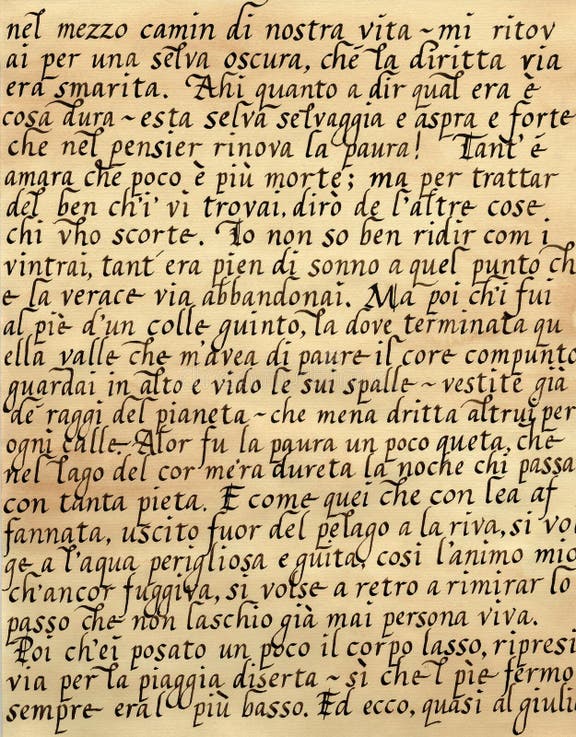 nel mezzo camin di nostra vita ~ mi ritov
ai per una selva oscura, ché la diritta via
era smarita. Ahi quanto a dir qual era è
cosa dura ~ esta selva selvaggia e aspra e forte
che nel pensier rinova la paura! Tant' é
amara che poco è più morte; ma per trattar
del ben ch'i' vi trovai, dirò de l'altre cose
chi vho scorte. Io non so ben ridir com i
vintrai, tant era pien di sonno a quel punto ch
e la verace via abbandonai. Ma poi ch'i fui
al piè d'un colle guinto, la dove terminata qu
ella valle che m'avea di paure il core compunto
guardai in alto e vido le sui spalle ~ vestite già
de raggi del pianeta ~ che mena dritta altrui per
ogni calle. Alor fu la paura un poco queta, che
nel lago del cor m'era dureta la noche chi passa
con tanta pieta. E come quei che con lea af
fannata, uscito fuor del pelago a la riva, si vol
ge a l'aqua perigliosa e guita, cosi l'animo mio
ch'ancor fuggiva, si volse a retro a rimirar lo
passo che non laschio già mai persona viva.
Poi ch'ei posato un poco il corpo lasso, ripresi
via per la piaggia diserta ~ sì che l pie fermo
sempre era l più basso. Ed ecco, quasi al giuli